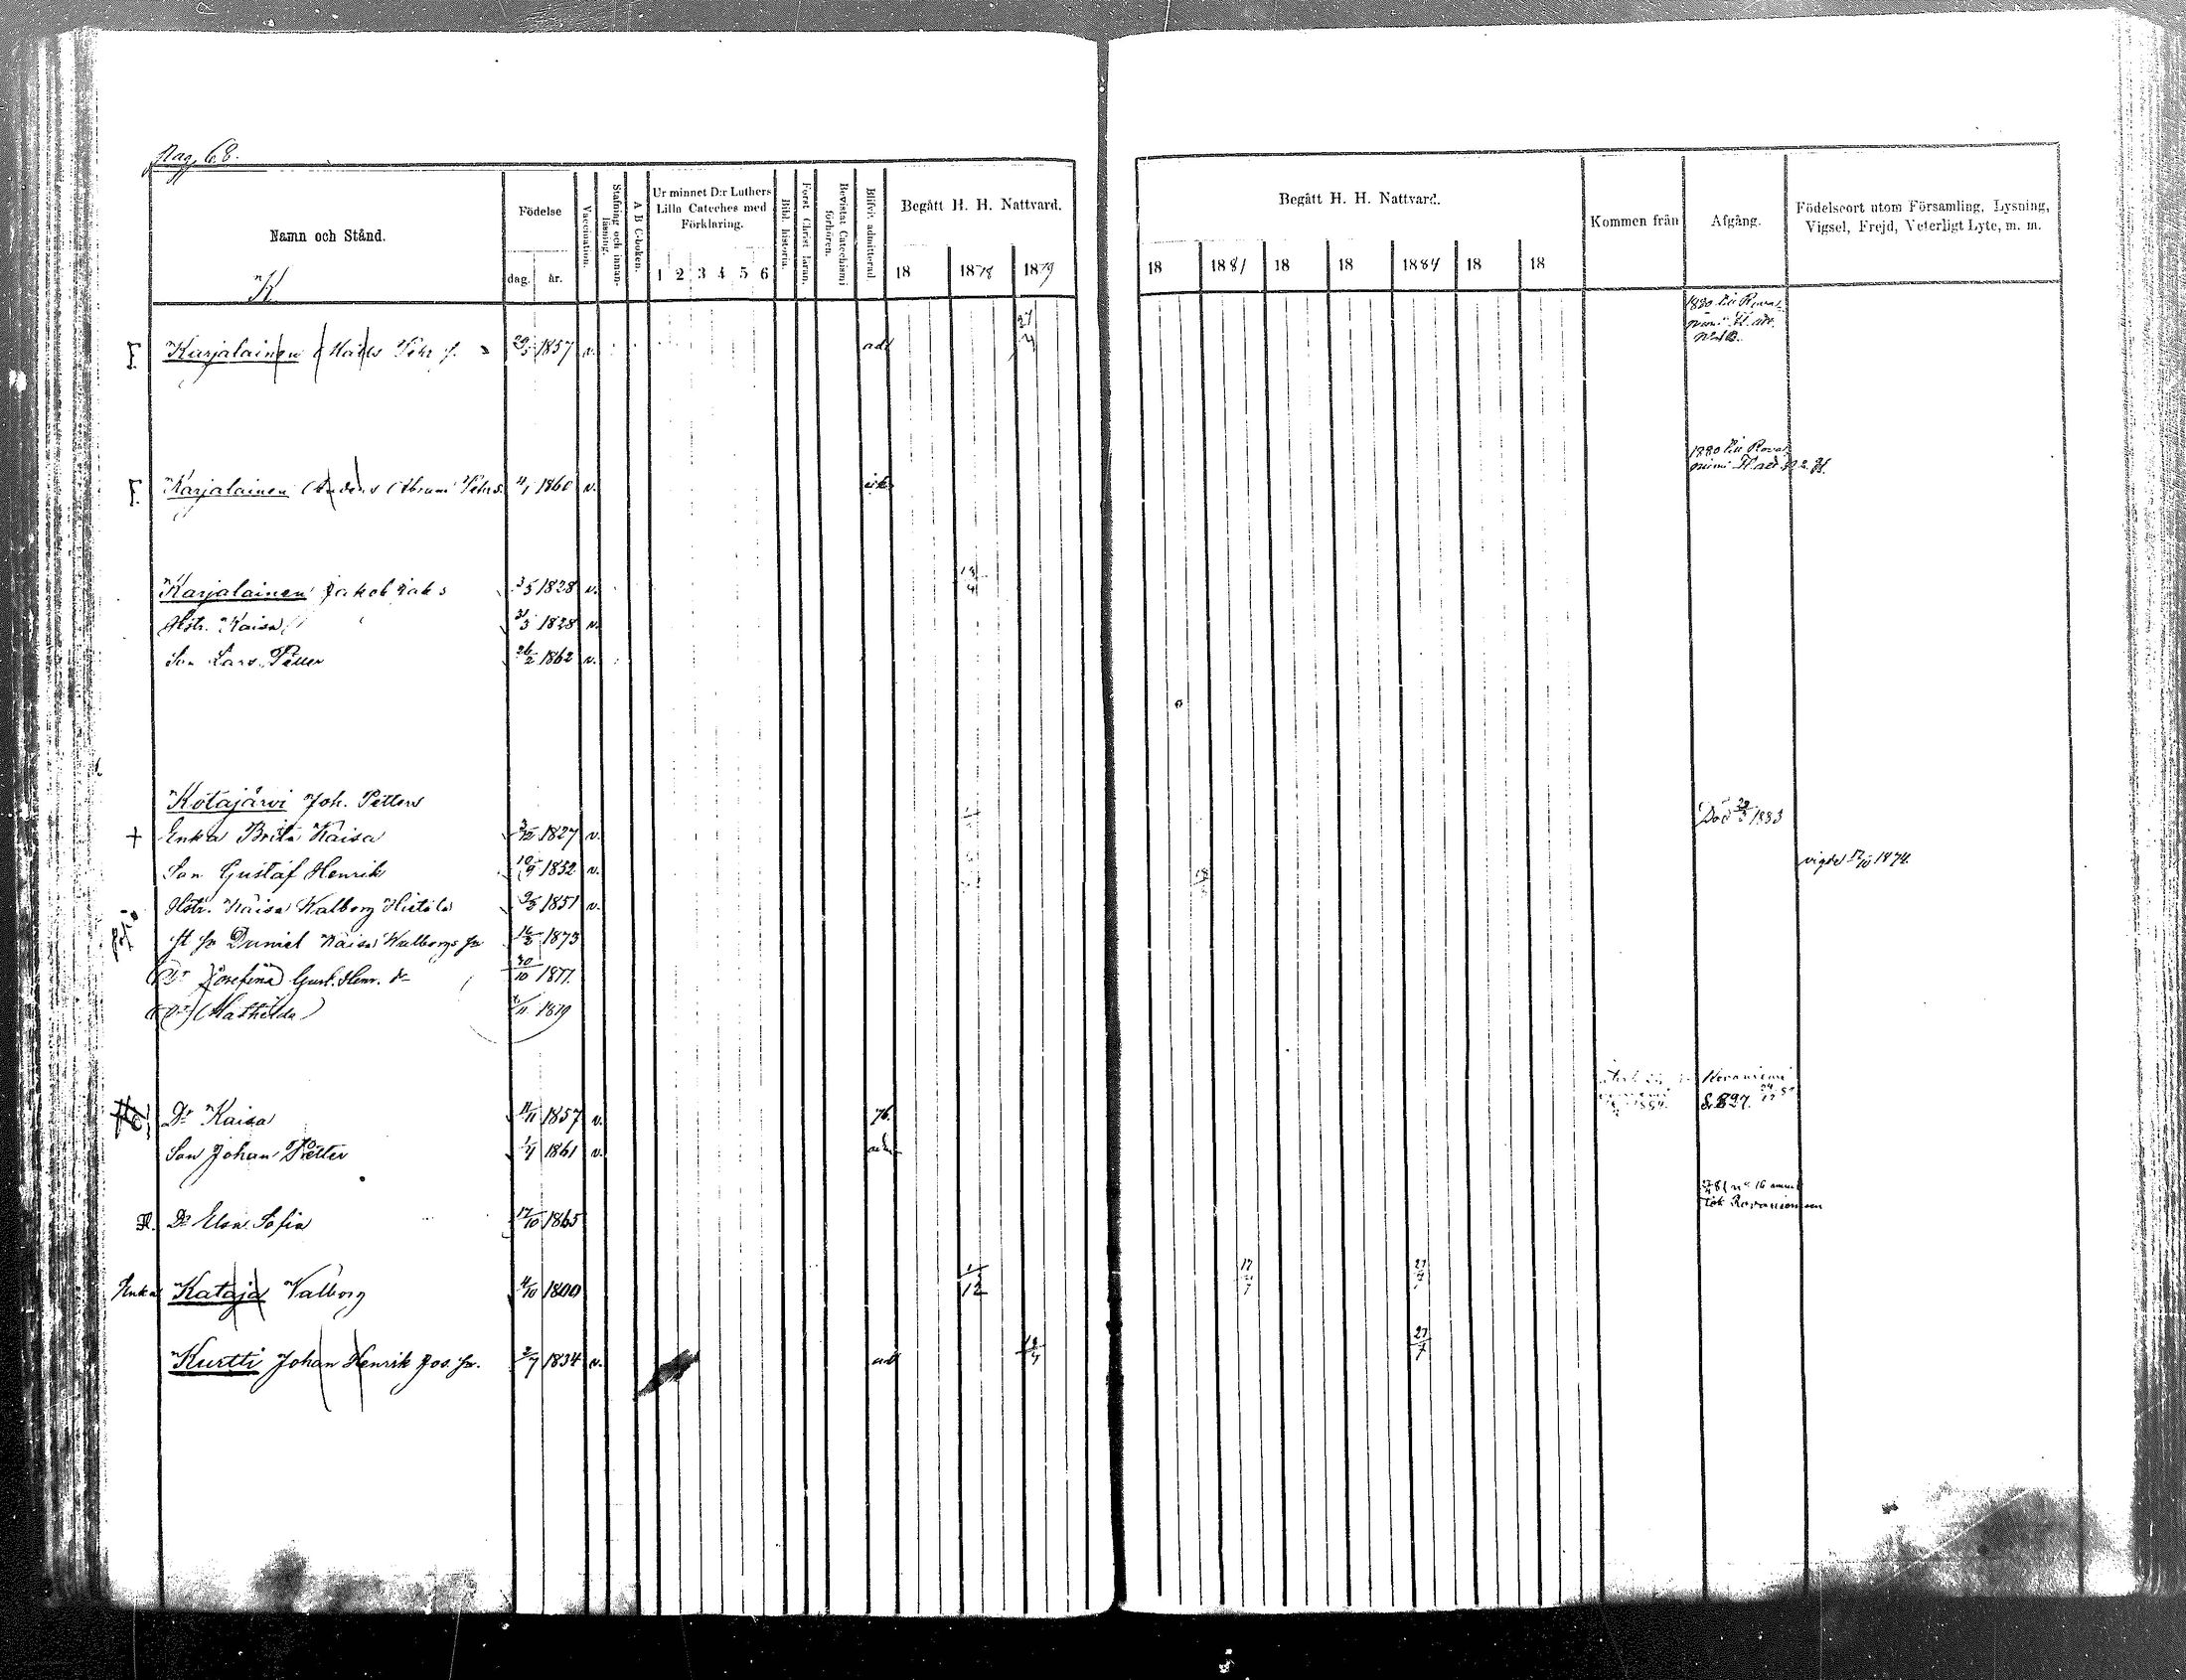 Pag. 68.
Namn och Stånd.
K
Födelse
dag. år.
Vaccination.
Stafning och innanläsning.
A B C-boken.
Ur minnet D:r Luthers Lilla Cateches med Förklaring.
1 2 3 4 5 6
Bibl. historia.
Först. Christ. läran.
Bevistat Catechismi förhören.
Blifvit admitterad.
Begått H. H. Nattvard.
18 1878 1879
Begått H. H. Nattvard.
18 1881 18 18 1884 18 18
Kommen från
Afgång.
Födelseort utom Församling, Lysning, Vigsel, Frejd, Veterligt Lyte, m. m.
Karjalainen Pehr 29/5 1857 v. adt 27/4 1880 till Rovaniemi
Karjalainen Anders Abram Pehrs. 4/1 1860 v. 1880 till Rovaniemi
Karjalainen Jakob Jaks 3/5 1828 v.
Hstr. Kaisa 31/5 1828 v.
Son Lars Petter 26/2 1862 v.
Kotajärvi Joh. Petters
+ Enka Brita Kaisa 3/12 1827 v. Död 1883
Son Gustaf Henrik 10/9 1852 v. vigde 1874.
Hstr. Kaisa Walborg Hietala 9/5 1851 v.
Daniel Kaisa Walborgs sn 16/3 1873
Dr Josefina Gust. Henr. dr 30/10 1877.
Dr Mathilda /11 1879
Dr Kaisa 11/11 1857 v. 76. Rovaniemi
Son Johan Petter 1/4 1861 v. adm.
Dr Elsa Sofia 17/10 1865 Rovaniemi
Enka Kataja Valborg 4/10 1800 1/12 17/7 27/7
Kurtti Johan Henrik Jos. sn. 2/7 1834 v. adt 13/4 27/7